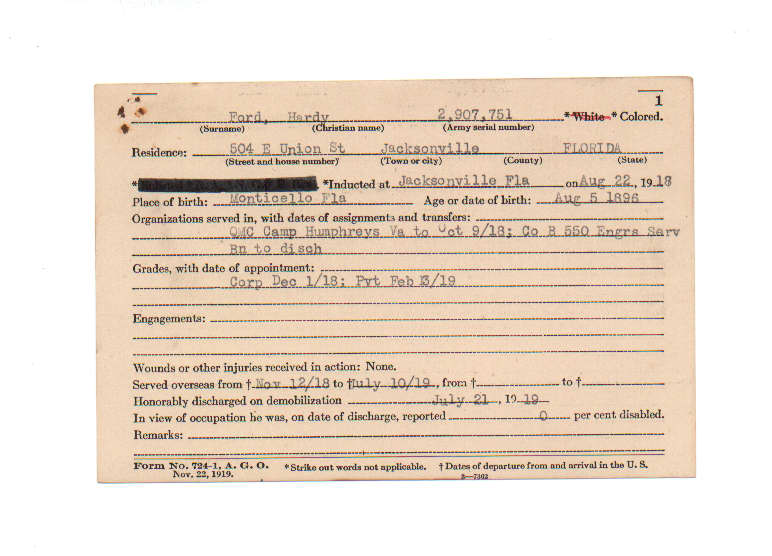 1
Ford, Hardy 2,907,751 *White * Colored.
(Surname) (Christian name) (Army serial number)
Residence: 504 E Union St Jacksonville FLORIDA
(Street and house number) (Town or city) (County) (State)
* *Inducted at Jacksonville Fla on Aug 22, 1918
Place of birth: Monticello Fla Age or date of birth: Aug 5 1896
Organizations served in, with dates of assignments and transfers:
QMC Camp Humphreys Va to Oct 9/18; Co B 550 Engrs Serv
Bn to disch
Grades, with date of appointment:
Corp Dec 1/18; Pvt Feb 13/19
Engagements:
Wounds or other injuries received in action: None.
Served overseas from † Nov 12/18 to † July 10/19, from † to †
Honorably discharged on demobilization July 21, 1919
In view of occupation he was, on date of discharge, reported 0 per cent disabled.
Remarks:
Form No. 724-1, A. G. O. *Strike out words not applicable. † Dates of departure from and arrival in the U. S.
Nov. 22, 1919. 3—7302